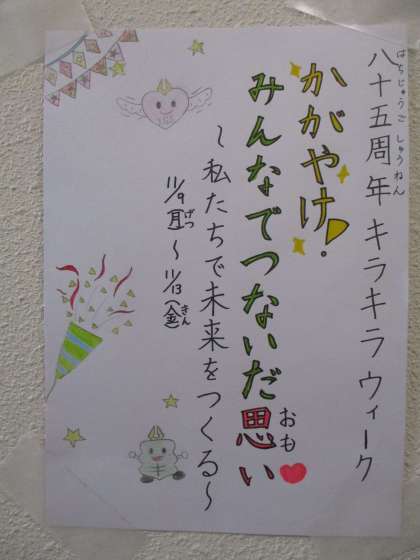 八十五周年キラキラウィーク
はちじゅうごしゅうねん
かがやけ!
みんなでつないだ思い
おも
～私たちで未来をつくる～
11/9(月)～11/13(金)
げつ
きん